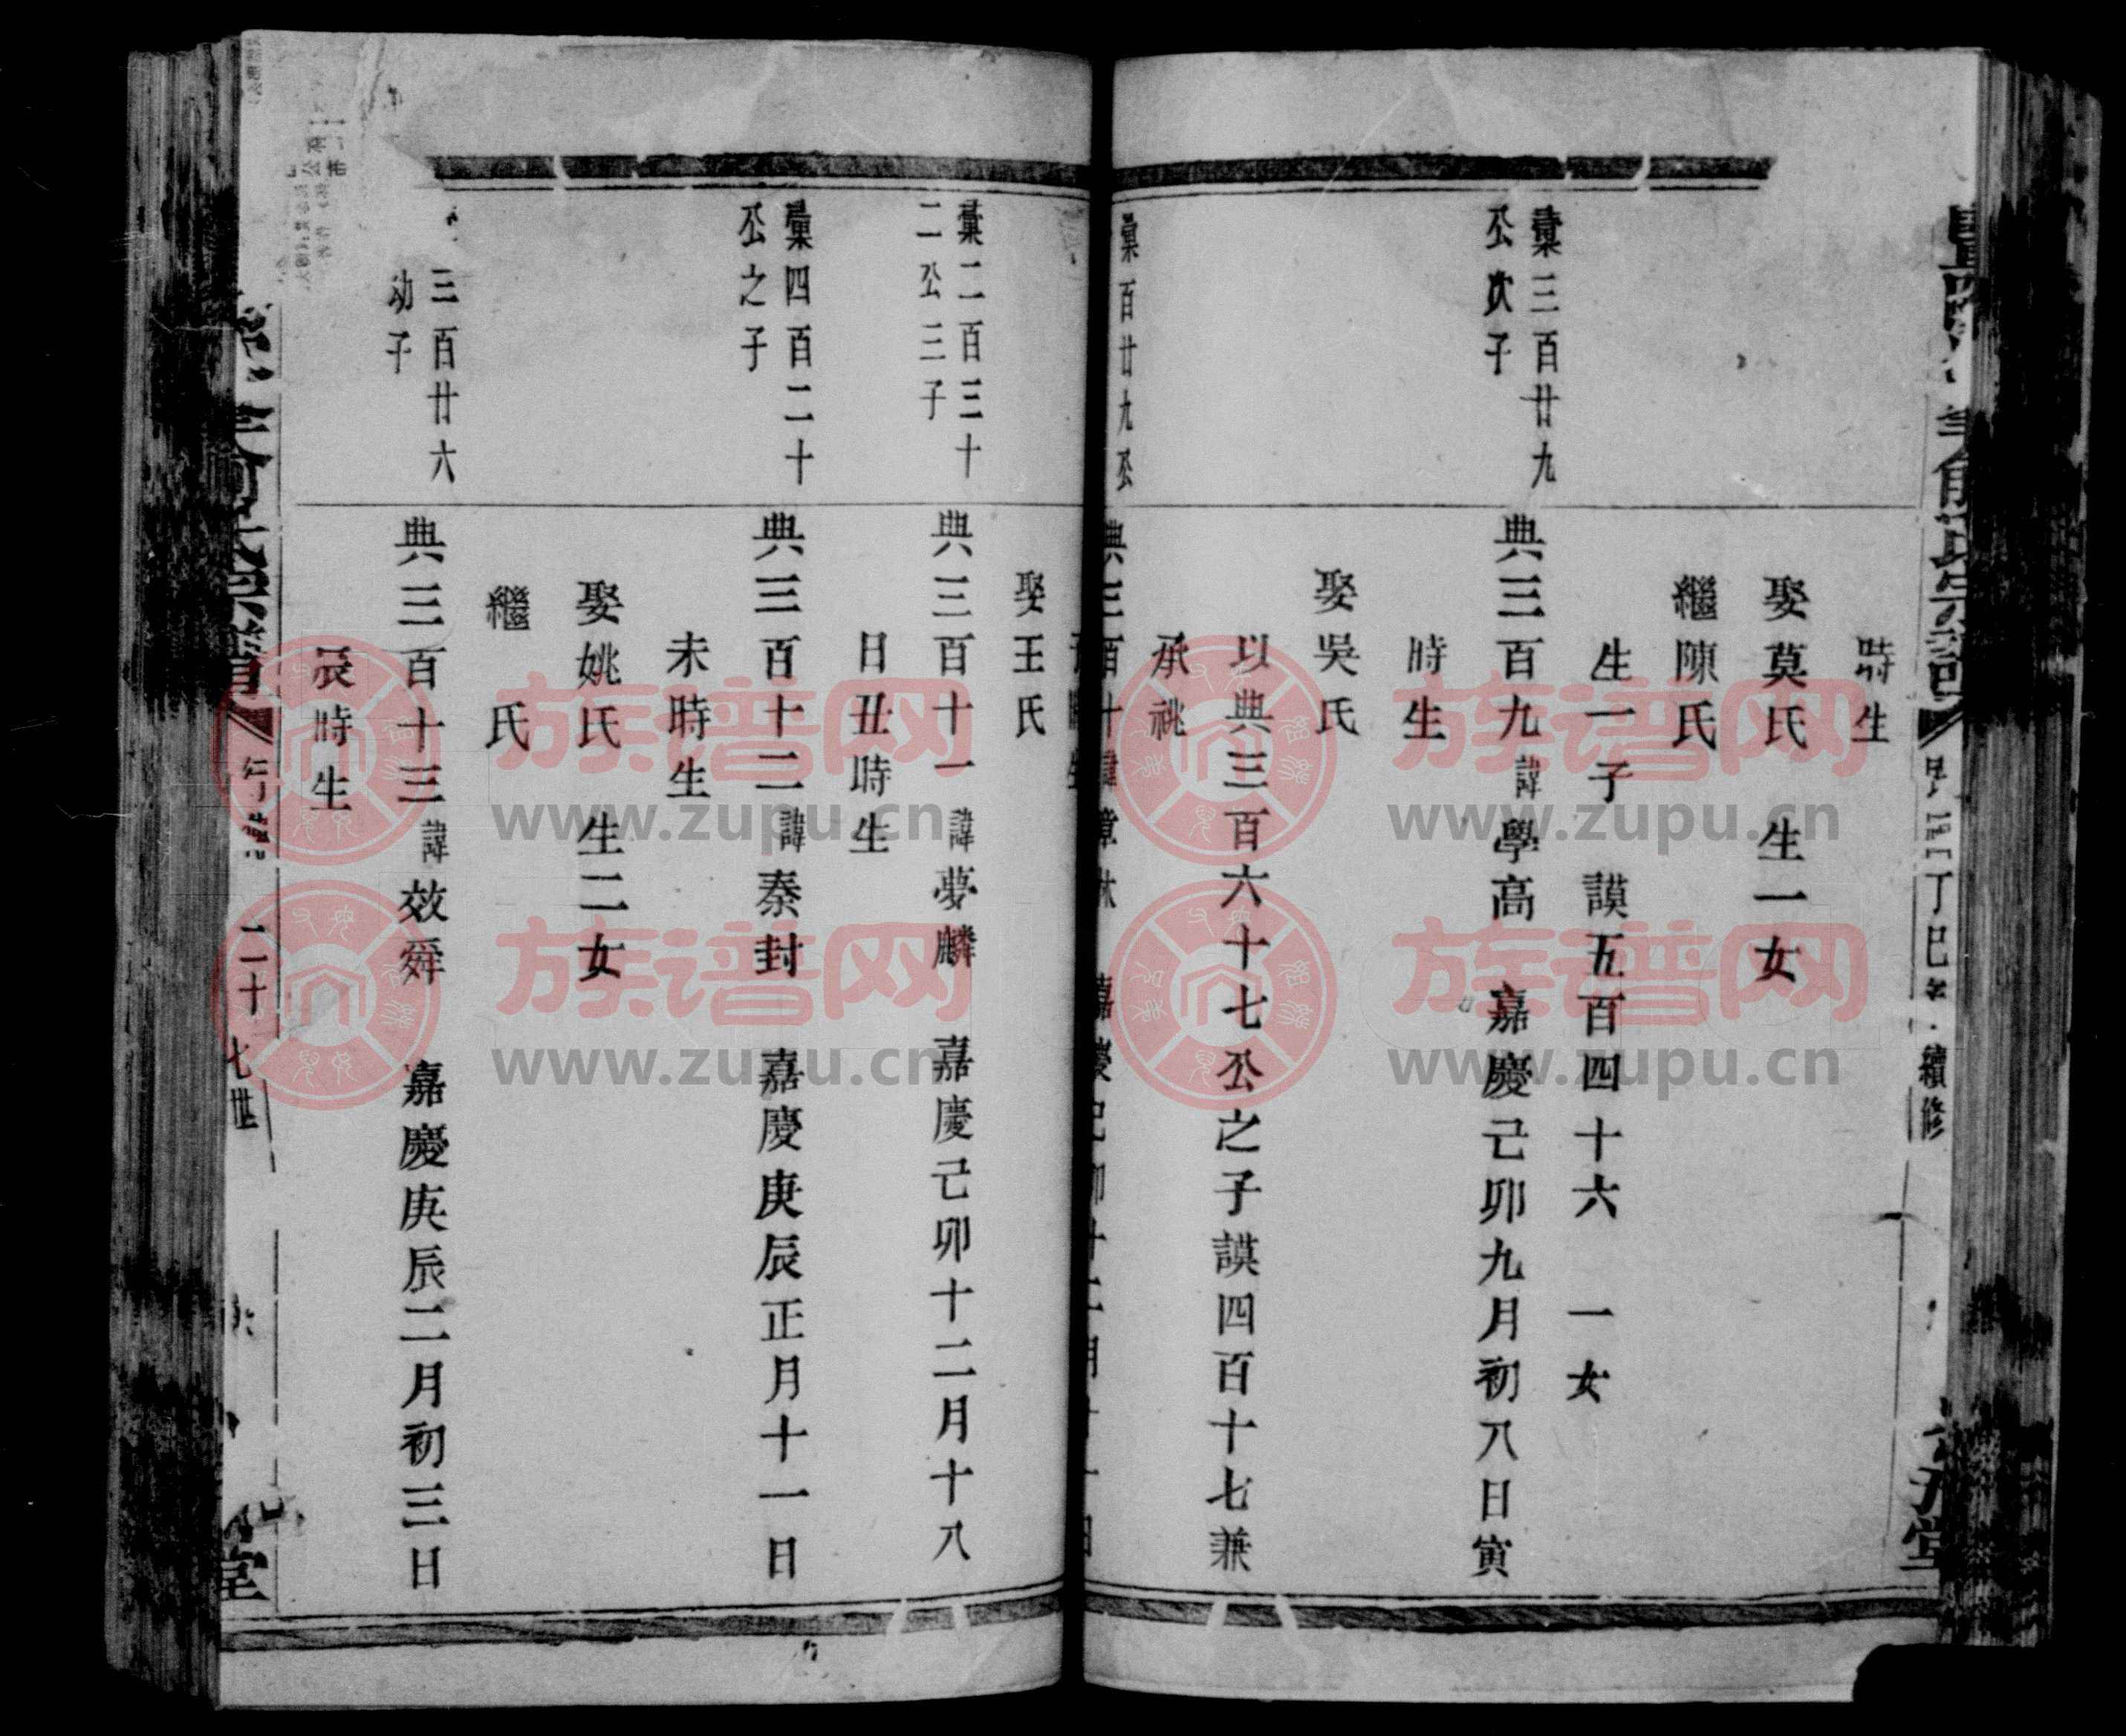 時生
娶莫氏 生一女
繼陳氏
生一子 謨五百四十六 一女
彙三百廿九
公次子
典三百九諱學高 嘉慶己卯九月初八日寅
時生
娶吳氏
以典三百六十七公之子謨四百十七兼
承祧
彙百廿九公
典三百十諱
娶王氏
彙二百三十
二公三子
典三百十一諱夢麟 嘉慶己卯十二月十八
日丑時生
彙四百二十
公之子
典三百十二諱秦封 嘉慶庚辰正月十一日
未時生
娶姚氏 生二女
繼 氏
三百廿六
幼子
典三百十三諱效舜 嘉慶庚辰二月初三日
辰時生
俞氏宗譜
丁巳 續修
堂
行 二十七世
堂
族谱网
www.zupu.cn
族谱网
www.zupu.cn
族谱网
www.zupu.cn
族谱网
www.zupu.cn